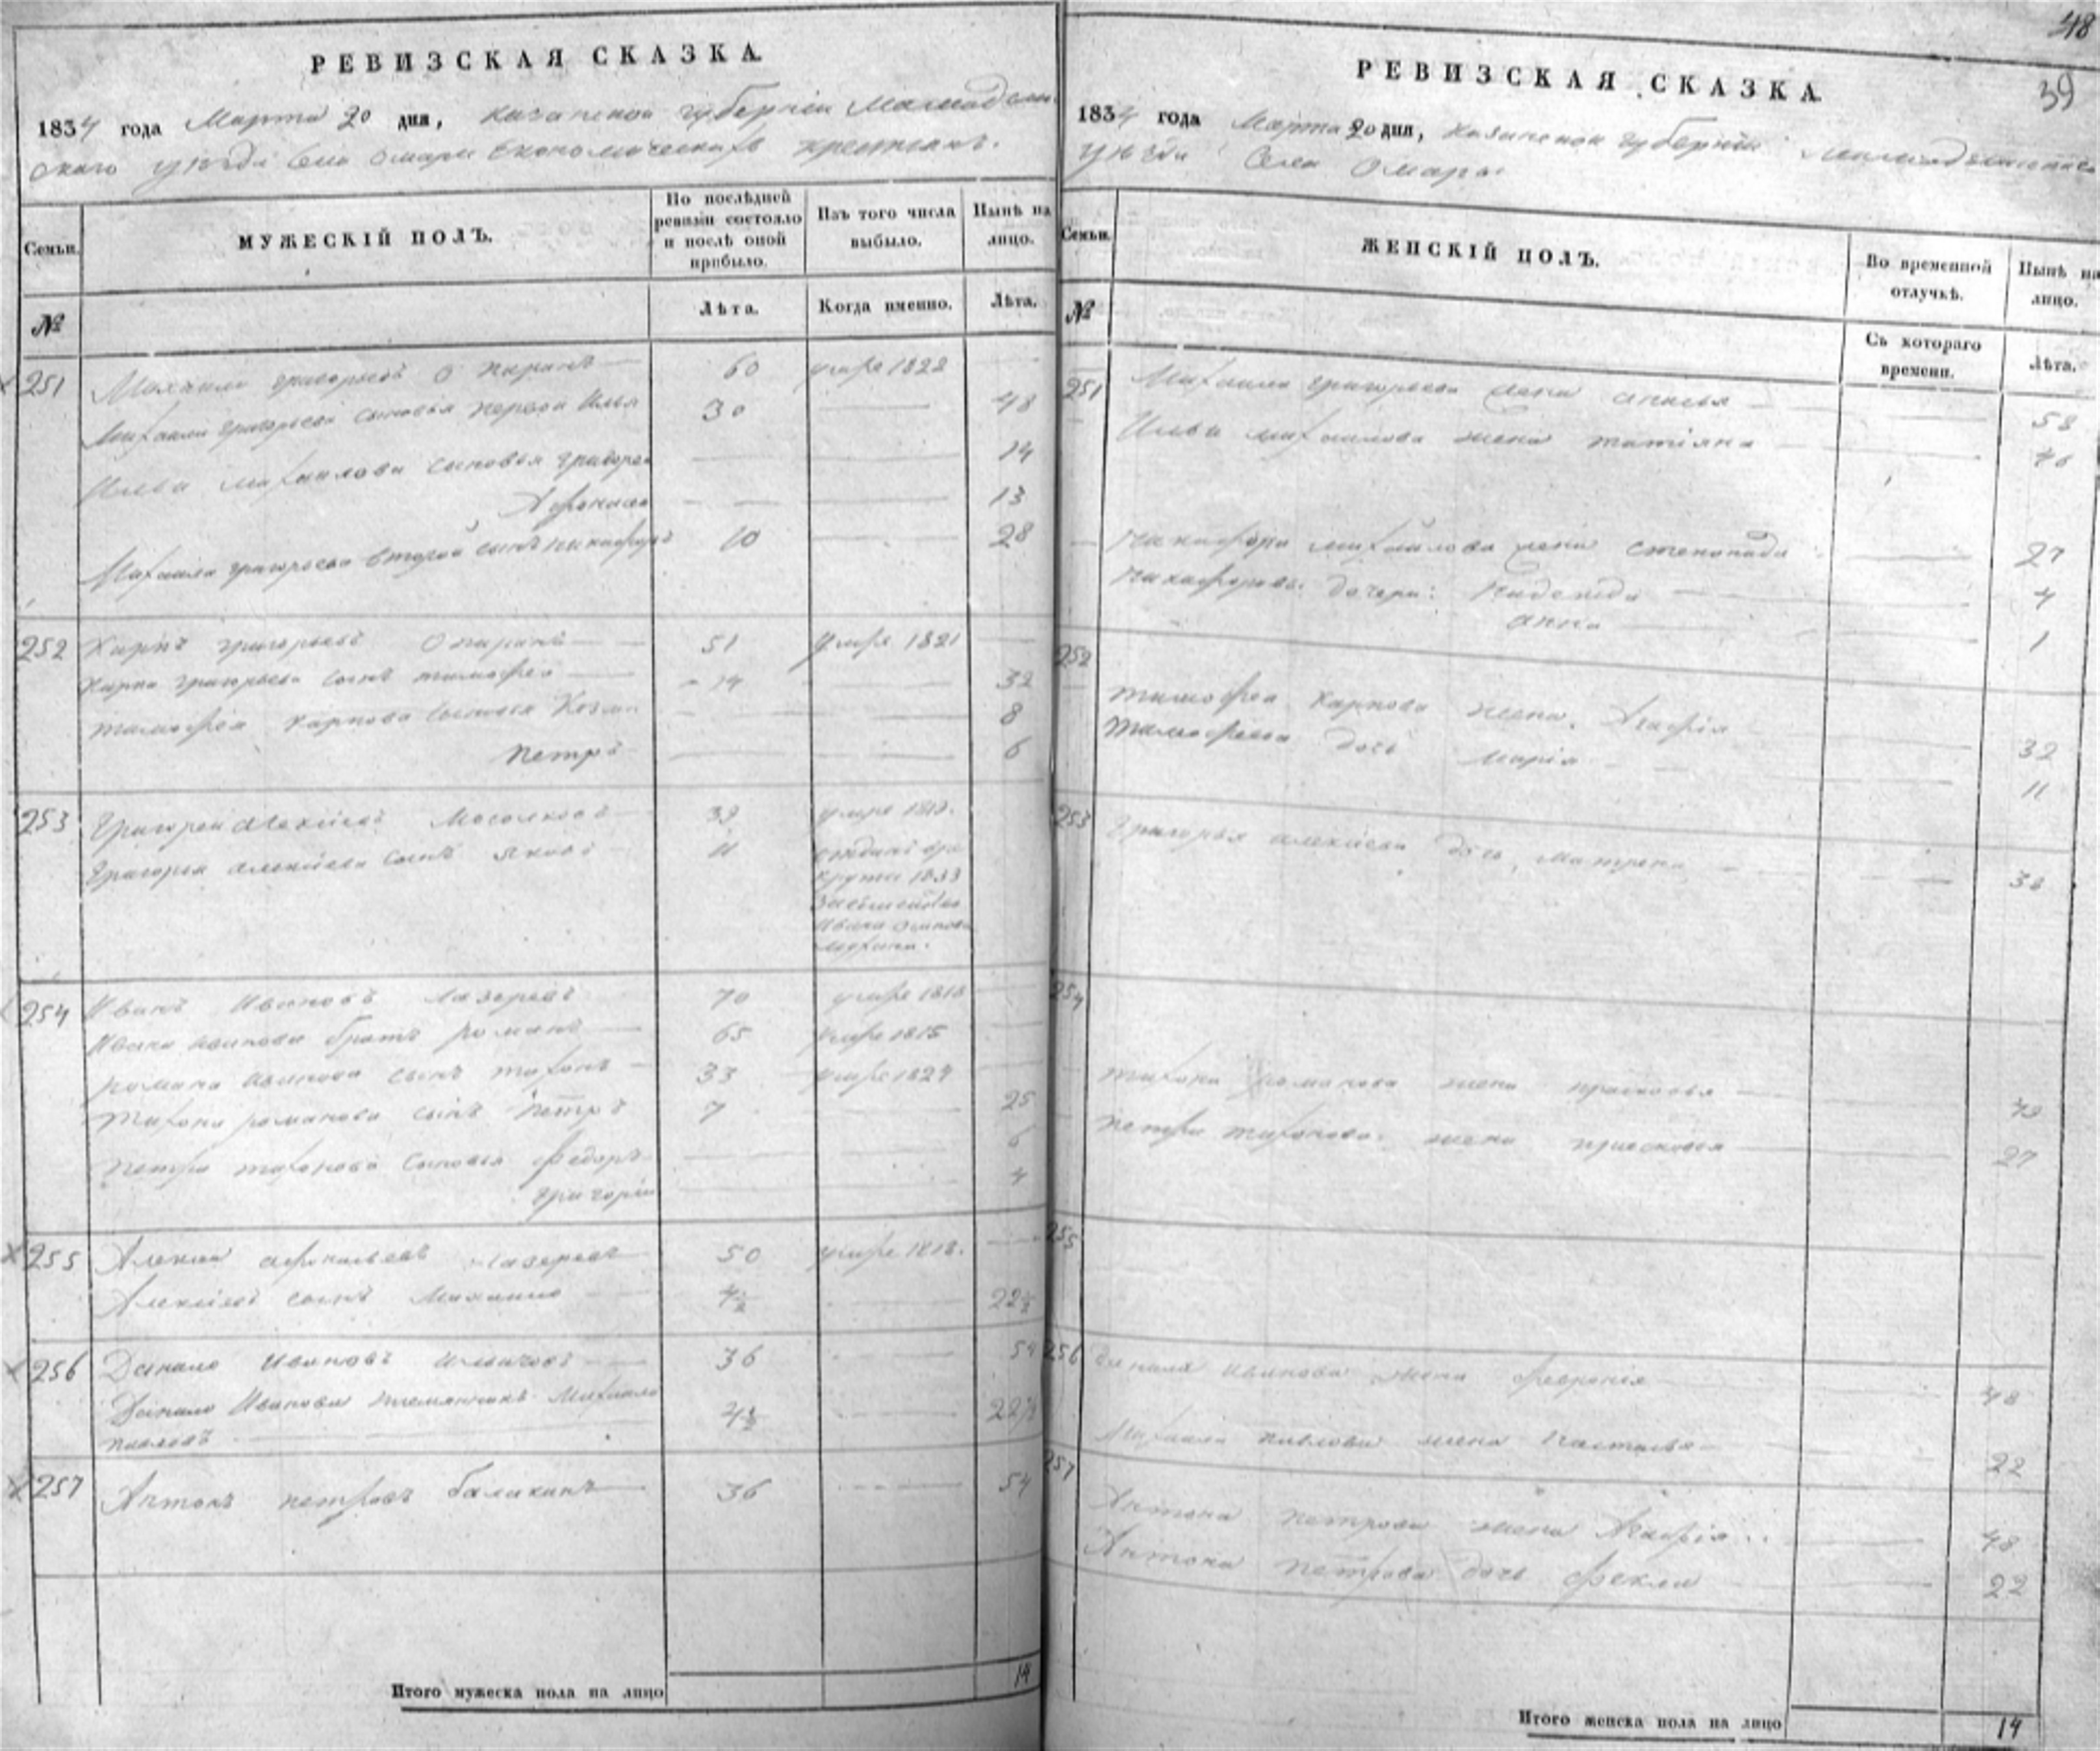 РЕВИЗСКАЯ СКАЗКА
1834 года Марта 20 дня, Казанской губернiи Мамадыш
скаго уезда Села Омары Економическихъ крестьянъ.
Семьи.
МУЖЕСКІЙ ПОЛЪ.
По послѣдней ревизіи состояло и послѣ оной прибыло.
Изъ того числа выбыло.
Нынѣ на лицо.
№
Лѣта.
Когда именно.
Лѣта.
251 Михаило Григорьевъ Опаринъ 60 умре 1822
Михаила Григорьева сыновья первой Илья 30 48
Ильи Михаилова сыновья Григорей 14
Афонасей 13
Михаила Григорьева второй сынъ Никифоръ 10 28
252 Карпъ Григорьевъ Опаринъ 51 умре 1821
Карпа Григорьева сынъ Тимофей 14 32
Тимофея Карпова сыновья Козма 8
Петръ 6
253 Григорей Алексѣевъ 39
Григорья Алексѣева сынъ Яковъ 11 отданъ
1833
Ивана Осипова
254 Иванъ Ивановъ Лазаревъ 70 умре 1818
Ивана Иванова братъ Романъ 65 умре 1815
Романа Иванова сынъ Тихонъ 33 умре 1824
Тихона Романова сынъ Петръ 7 25
Петра Тихонова сыновья Федоръ 6
Григорiй 4
255 Алексей Афонасьевъ Лазаревъ 50 умре 1818.
Алексѣевъ сынъ Михаило 4½ 22½
256 Данило Ивановъ 36 54
Данило Иванова племянникъ Михаило 4½ 22½
Павловъ
257 Антонъ Петровъ Балакинъ 36 54
Итого мужеска пола на лицо 14
48
39
РЕВИЗСКАЯ СКАЗКА
1834 года Марта 20 дня, Казанской губернiи Мамадышскаго
уезда Села Омары
Семьи.
ЖЕНСКІЙ ПОЛЪ.
Во временной отлучкѣ.
Нынѣ на лицо.
№
Съ котораго времени.
Лѣта.
251 Михаила Григорьева жена 58
Ильи Михаилова жена Татiяна 46
Никифора Михаилова жена Степонида 27
Никифоровы дочери: Надежда 4
Анна 1
252
Тимофея Карпова жена Агафiя 32
Тимофеева дочь Марiя 11
253 Григорья Алексѣева дочь Матрена
254
Тихона Романова жена Прасковья
Петра Тихонова жена Прасковья 27
255
256 Данила Иванова жена Февронiя 48
Михаила Павлова жена Настасья 22
257
Антона Петрова жена Агафiя 48
Антона Петрова дочь Фекла 22
Итого женска пола на лицо 14